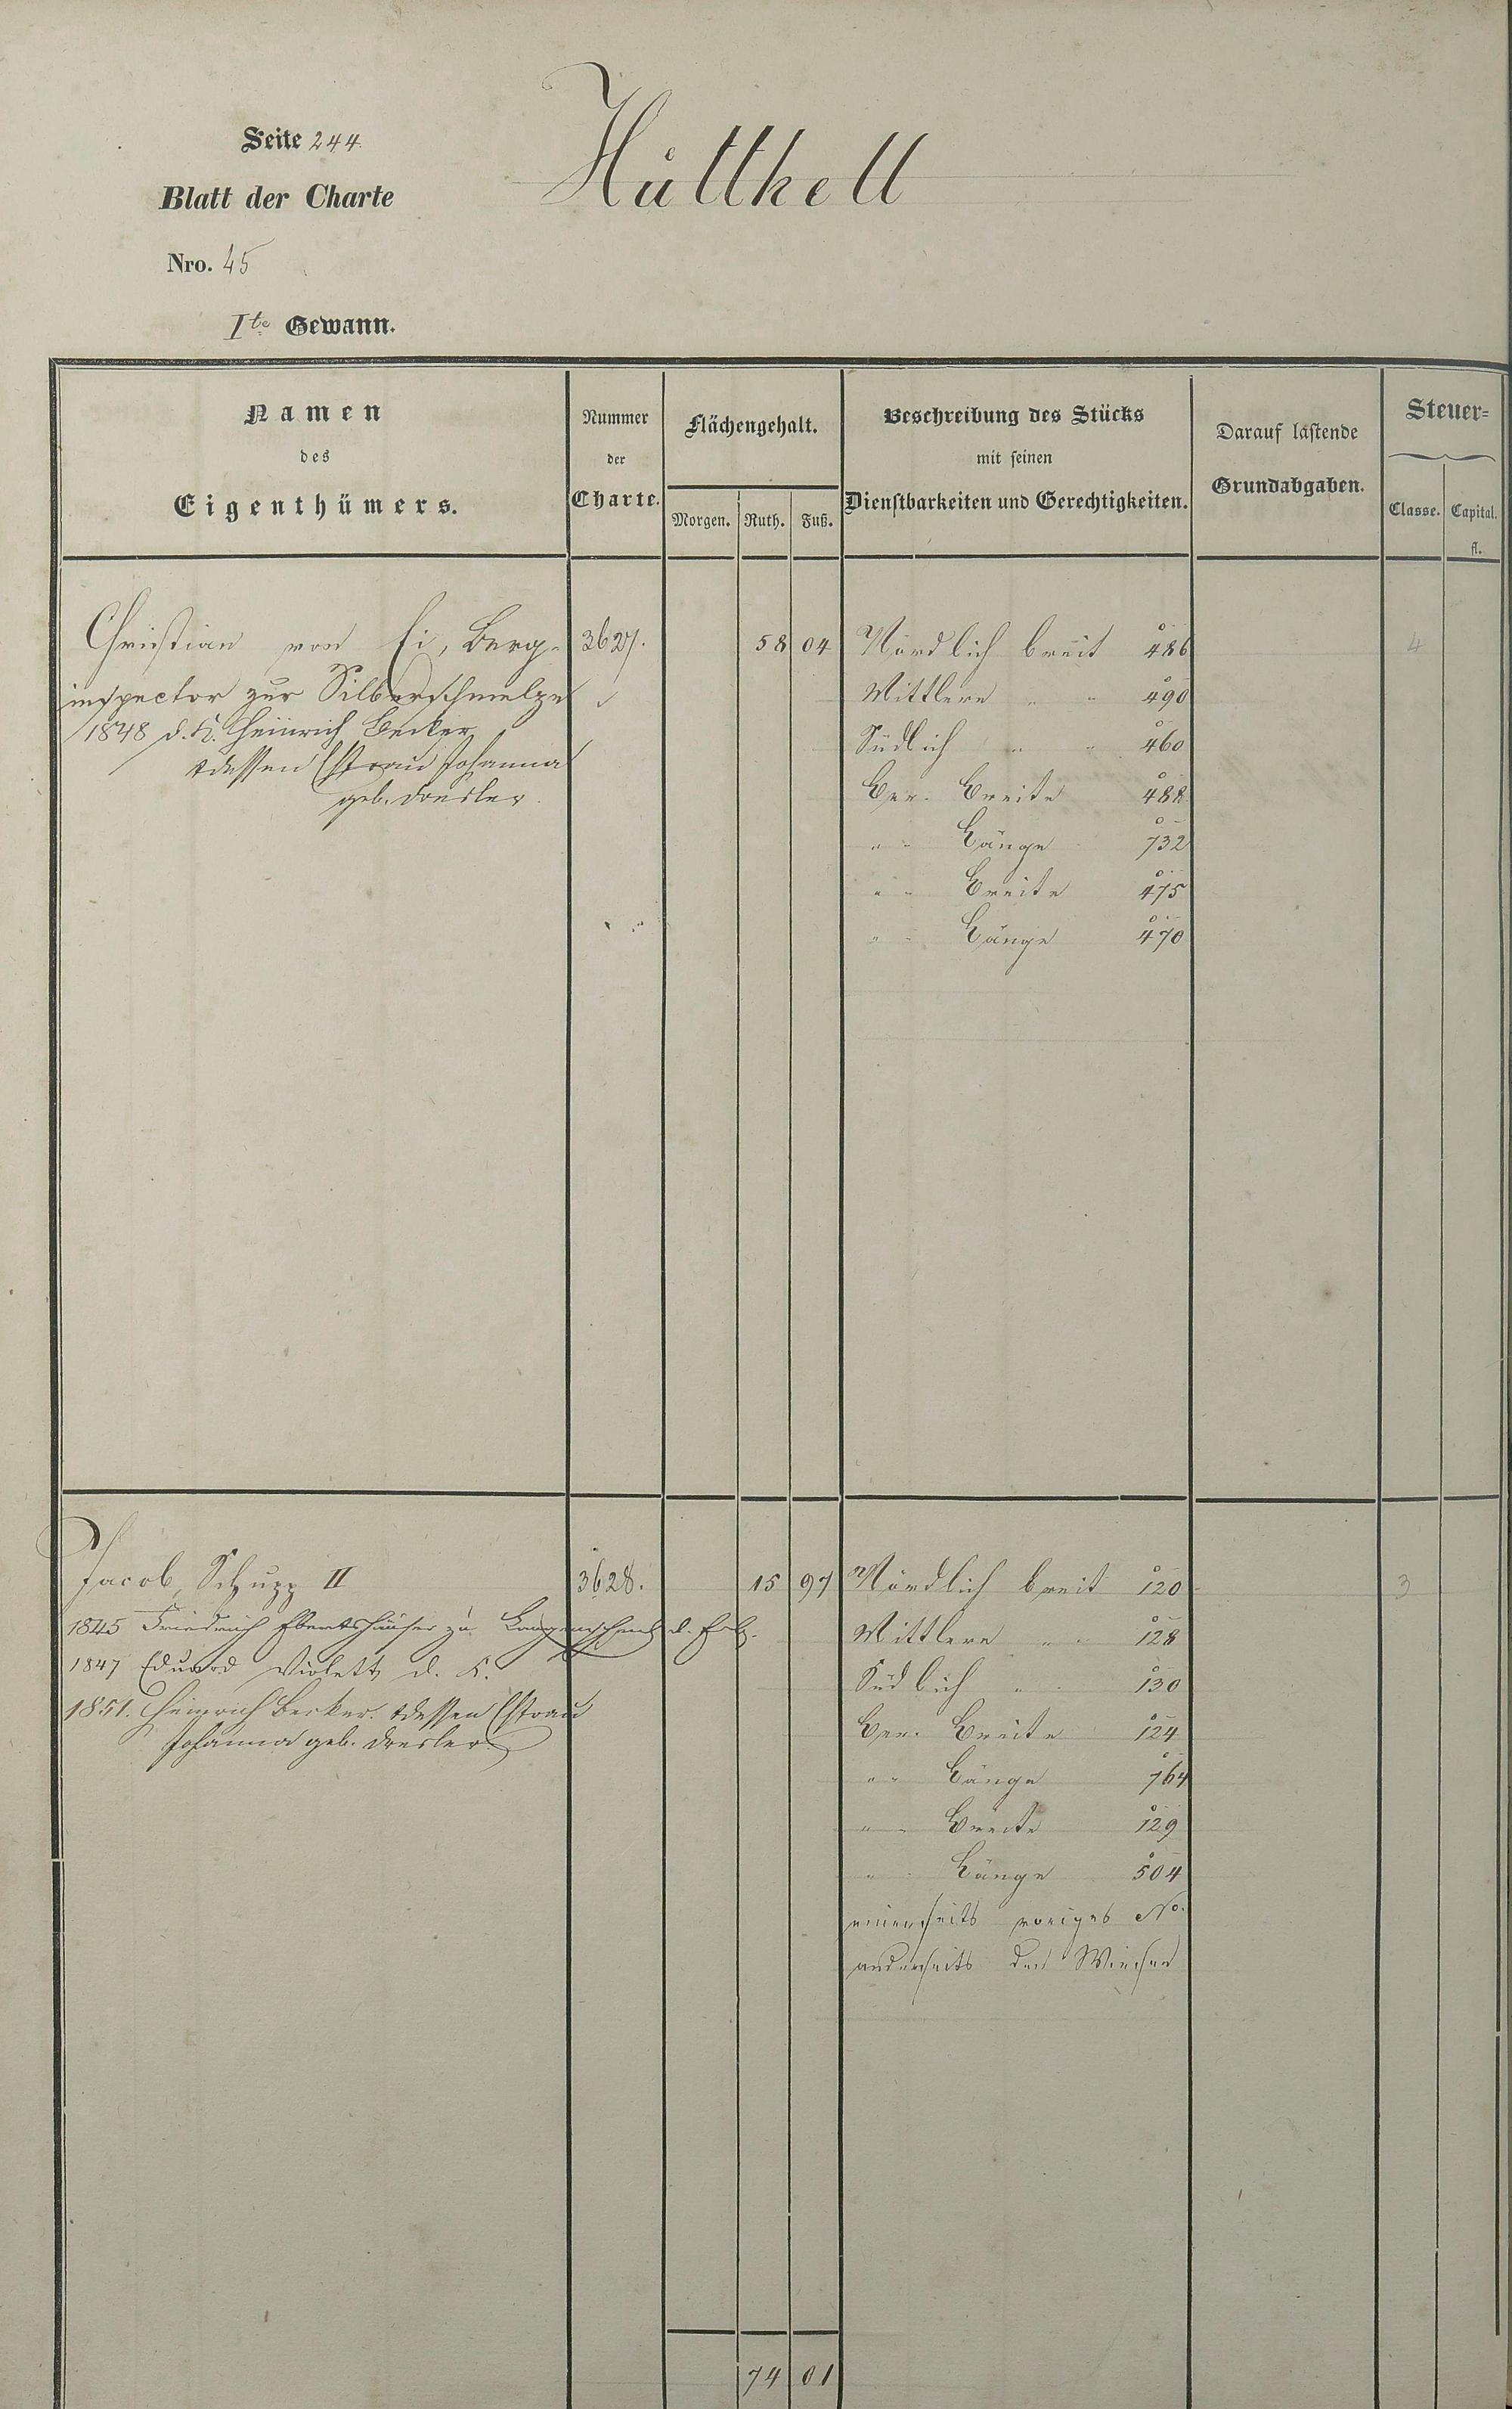 Seite 244.
Hüttkell
Blatt der Charte
Nro. 45
Ite Gewann.
Namen
des
Eigenthümers.
Nummer
der
Charte.
Flächengehalt.
Morgen. Ruth. Fuß.
Beschreibung des Stücks
mit seinen
Dienstbarkeiten und Gerechtigkeiten.
Darauf lastende
Grundabgaben.
Steuer=
Classe. Capital.
fl.
Christian von Ei, Berg- 3627. 58 04 Nördlich breit 486 4
inspector zur Silberschmelze Mittlere " " 490
1848 d. K. Heinrich Becker Südlich " " 460
dessen Ehfrau Johanna Ber. Breite 488
geb. Dresler " " Länge 732
" " Breite 475
" " Länge 470
Jacob Schupp II 3628. 15 97 Nördlich breit 120 3
1845 Friedrich Ebertshäuser zu d. Erb. Mittlere " " 128
1847 Eduard Violett d. K. Südlich " " 130
1851. Heinrich Becker. dessen Ehfrau Ber. Breite 124
Johanna geb. Dresler " " Länge 764
" " Breite 129
" " Länge 504
einerseits voriges No.
anderseits den
74 01